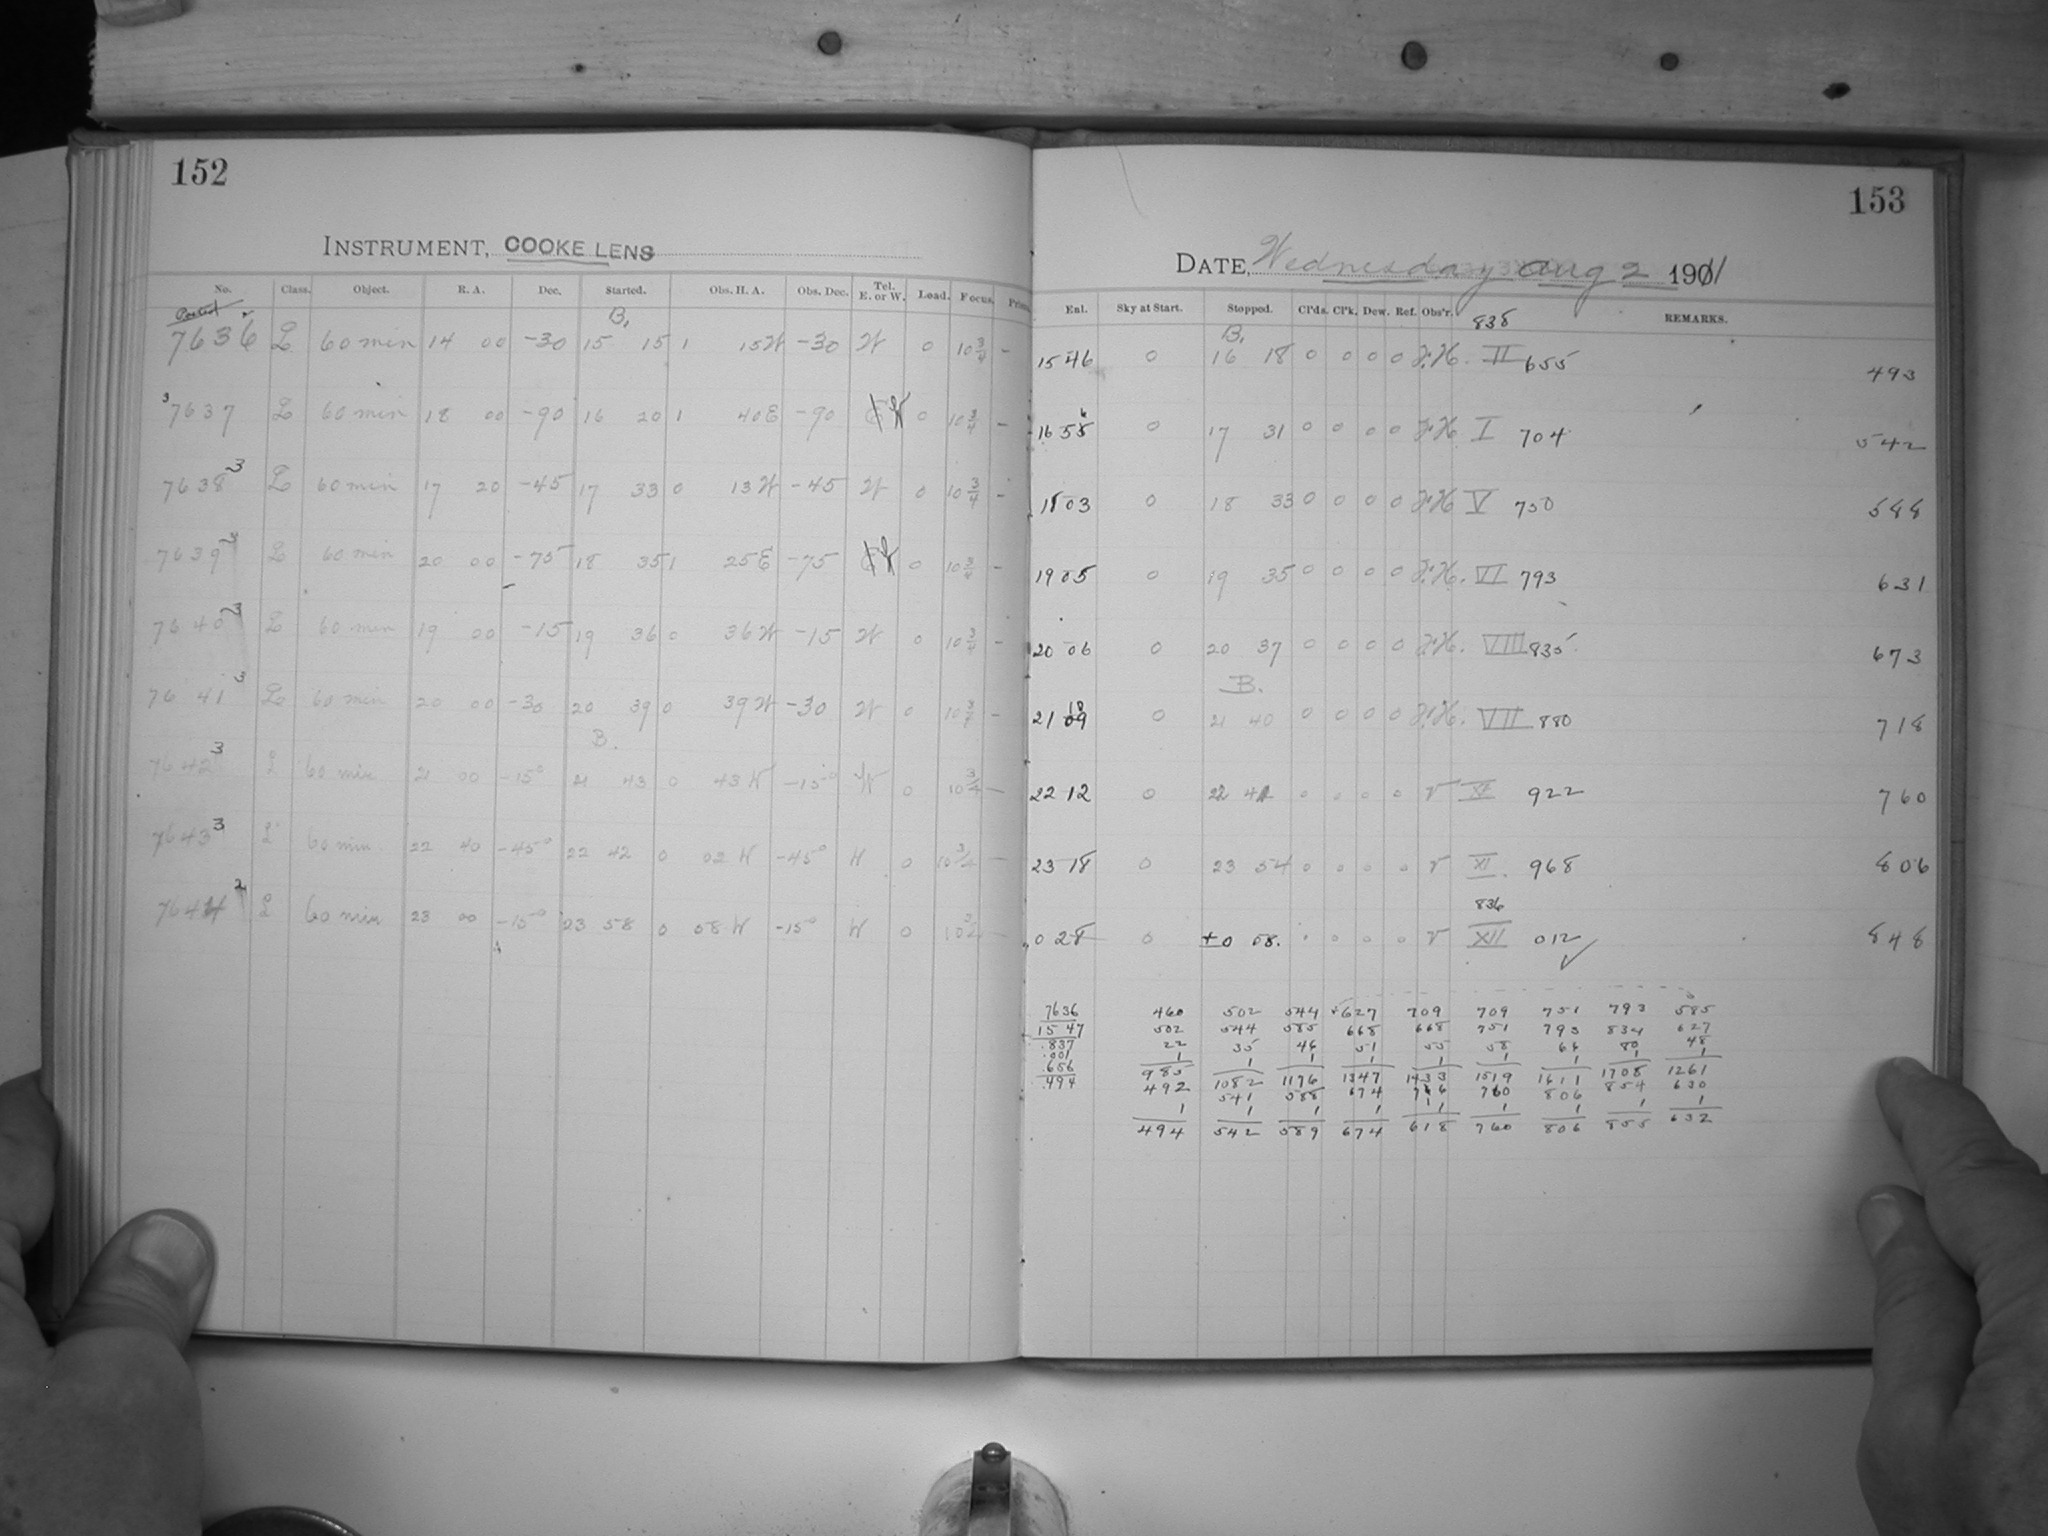 152
INSTRUMENT, COOKE LENS
No. Class. Object. R. A. Dec. Started. Obs. H. A. Obs. Dec. Tel. E. or W. Load. Focus.
B.
7636 L 60 min 14 00 -30 15 15 1 15 W -30 W 0 10 3/4 -
7637 L 60 min 18 00 -90 16 20 1 40 E -90 W 0 10 3/4 -
7638 3 L 60 min 17 20 -45 17 33 0 13 W -45 W 0 10 3/4 -
7639 L 60 min 20 00 -75 18 35 1 25 E -75 W 0 10 3/4 -
7640 3 L 60 min 19 00 -15 19 36 0 36 W -15 W 0 10 3/4 -
7641 3 L 60 min 20 00 -30 20 39 0 39 W -30 W 0 10 3/4 -
B.
7642 3 L 60 min 21 00 -15° 21 43 0 43 W -15° W 0 10 3/4 -
7643 3 L 60 min 22 40 -45° 22 42 0 02 W -45° W 0 10 3/4 -
7644 2 L 60 min 23 00 -15° 23 58 0 58 W -15° W 0 10 3/4 -
153
DATE, Wednesday Aug 2 1901
Enl. Sky at Start. Stopped. Cl'ds. Cl'k. Dew. Ref. Obs'r. REMARKS.
B. 838
15 46 0 16 18 0 0 0 0 F.H. II 655 493
16 55 0 17 31 0 0 0 0 F.H. I 704 542
18 03 0 18 33 0 0 0 0 F.H. V 750 588
19 05 0 19 35 0 0 0 0 F.H. VI 793 631
20 06 0 20 37 0 0 0 0 F.H. VIII 835 673
B.
21 09 0 21 40 0 0 0 0 F.H. VII 880 718
22 12 0 22 41 0 0 0 0 V 922 760
23 18 0 23 54 0 0 0 0 V XI 968 806
836
0 28 0 +0 58. 0 0 0 0 V XII 012 848
7636 460 502 544 627 709 709 751 793 585
15 47 502 544 585 668 668 751 793 834 627
.837 22 35 46 51 55 58 66 80 48
.001 1 1 1 1 1 1 1 1 1
.656 985 1082 1176 1347 1433 1519 1611 1708 1261
.494 492 541 588 674 760 806 854 630
1 1 1 1 1 1 1 1 1 1
494 542 589 674 618 760 806 855 632